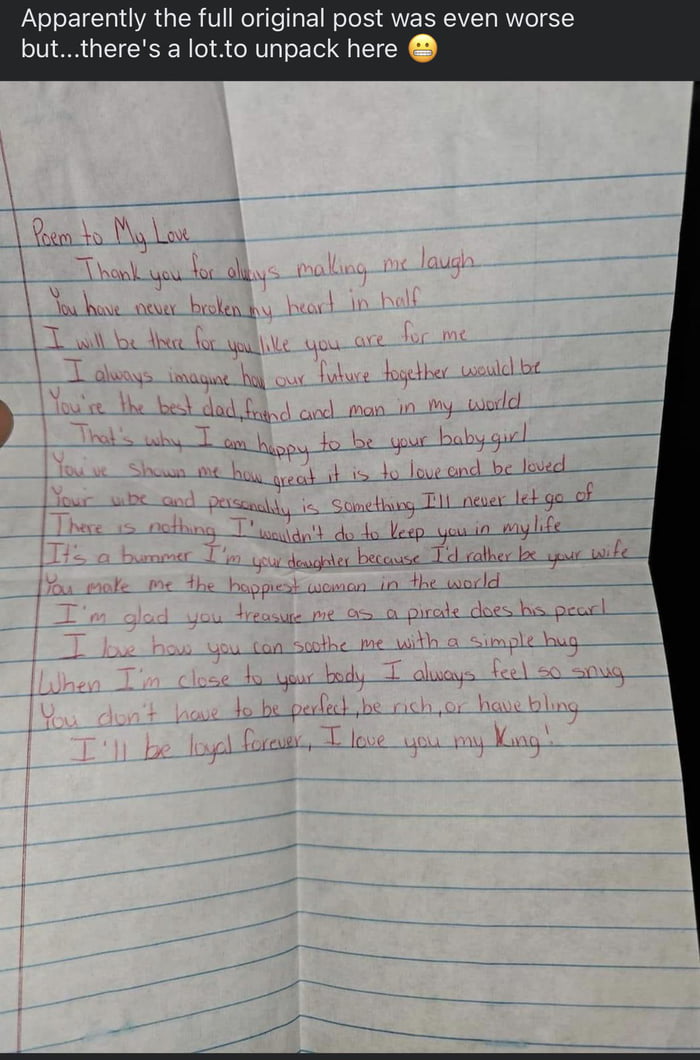 Apparently the full original post was even worse
but...there's a lot.to unpack here 😬
Poem to My Love
Thank you for always making me laugh
You have never broken my heart in half
I will be there for you like you are for me
I always imagine how our future together would be
You're the best dad, friend and man in my world
That's why I am happy to be your baby girl
You've shown me how great it is to love and be loved
Your vibe and personality is something I'll never let go of
There is nothing I'wouldn't do to keep you in my life
It's a bummer I'm your daughter because I'd rather be your wife
You make me the happiest woman in the world
I'm glad you treasure me as a pirate does his pearl
I love how you can soothe me with a simple hug
When I'm close to your body I always feel so snug
You don't have to be perfect, be rich, or have bling
I'll be loyal forever, I love you my King!